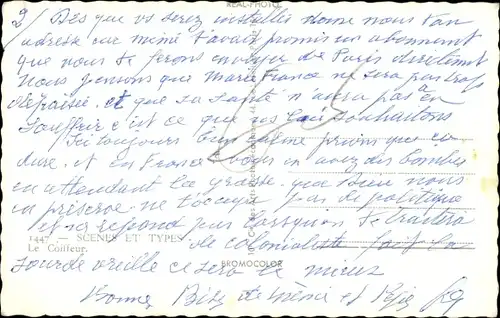 2/ Dès que vs serez installés donne nous ton
adresse car mémé t'avait promis un abonnement
que nous te ferons envoyer de Paris directement
Nous pensons que Marie France ne sera pas trop
dépaisée et que sa santé n'aura pas à en
souffrir c'est ce que nous lui souhaitons
Ici toujours même prions que ça
dure et en France vous en avez des bombes
en attendant la grosse que Dieu nous
en préserve ne t'occupe pas de politique
et ne répond pas lorsqu'on te traitera
de colonialiste fait la
sourde oreille ce sera le mieux
Bonnes Bises de Mémé et Pépé
REAL-PHOTO
1447 — SCENES ET TYPES
Le Coiffeur
BROMOCOLOR